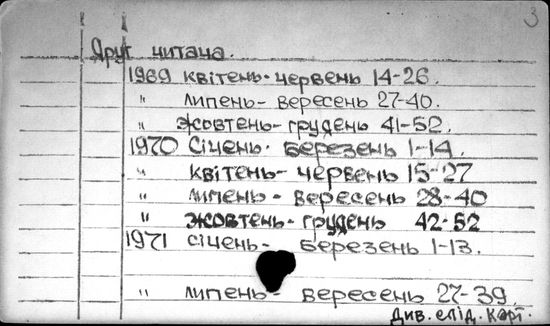 3
Друг читача.
1969 квітень-червень 14-26.
" липень-вересень 27-40.
" жовтень-грудень 41-52.
1970 Січень-березень 1-14.
" квітень-червень 15-27
" липень-вересень 28-40
" жовтень-грудень 42-52
1971 січень-березень 1-13.
" липень-вересень 27-39.
Див. слід. карт.